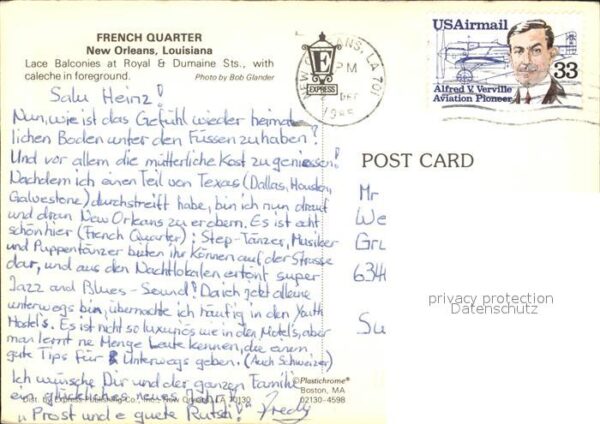 FRENCH QUARTER
New Orleans, Louisiana
Lace Balconies at Royal & Dumaine Sts., with
caleche in foreground.
Photo by Bob Glander
Salu Heinz!
Nun, wie ist das Gefühl wieder heimat-
lichen Boden unter den Füssen zu haben?
Und vor allem die mütterliche Kost zu geniessen!
Nachdem ich einen Teil von Texas (Dallas, Houston,
Galvestone) durchstreift habe, bin ich nun drauf
und dran New Orleans zu erobern. Es ist echt
schön hier (French Quarter); Step-Tänzer, Musiker
und Puppentänzer bieten ihr Können auf der Strasse
dar, und aus den Nachtlokalen ertönt super
Jazz and Blues-Sound! Da ich jetzt alleine
unterwegs bin, übernachte ich häufig in den Youth
Hostel's. Es ist nicht so luxuriös wie in den Motel's, aber
man lernt ne Menge Leute kennen, die einem
gute Tips für Unterwegs geben. (Auch Schweizer)
Ich wünsche Dir und der ganzen Familie
ein glückliches neues Jahr!
"Prost und e guete Rutsch!" Fredy
Dist. by Express Publishing Co., Inc., New Orleans, LA 70130
©Plastichrome®
Boston, MA
02130-4598
NEW ORLEANS, LA 701
E
EXPRESS
PM
DEC
1985
USAirmail
33
Alfred V. Verville
Aviation Pioneer
POST CARD
Mr
We
Gru
634
Su
privacy protection
Datenschutz